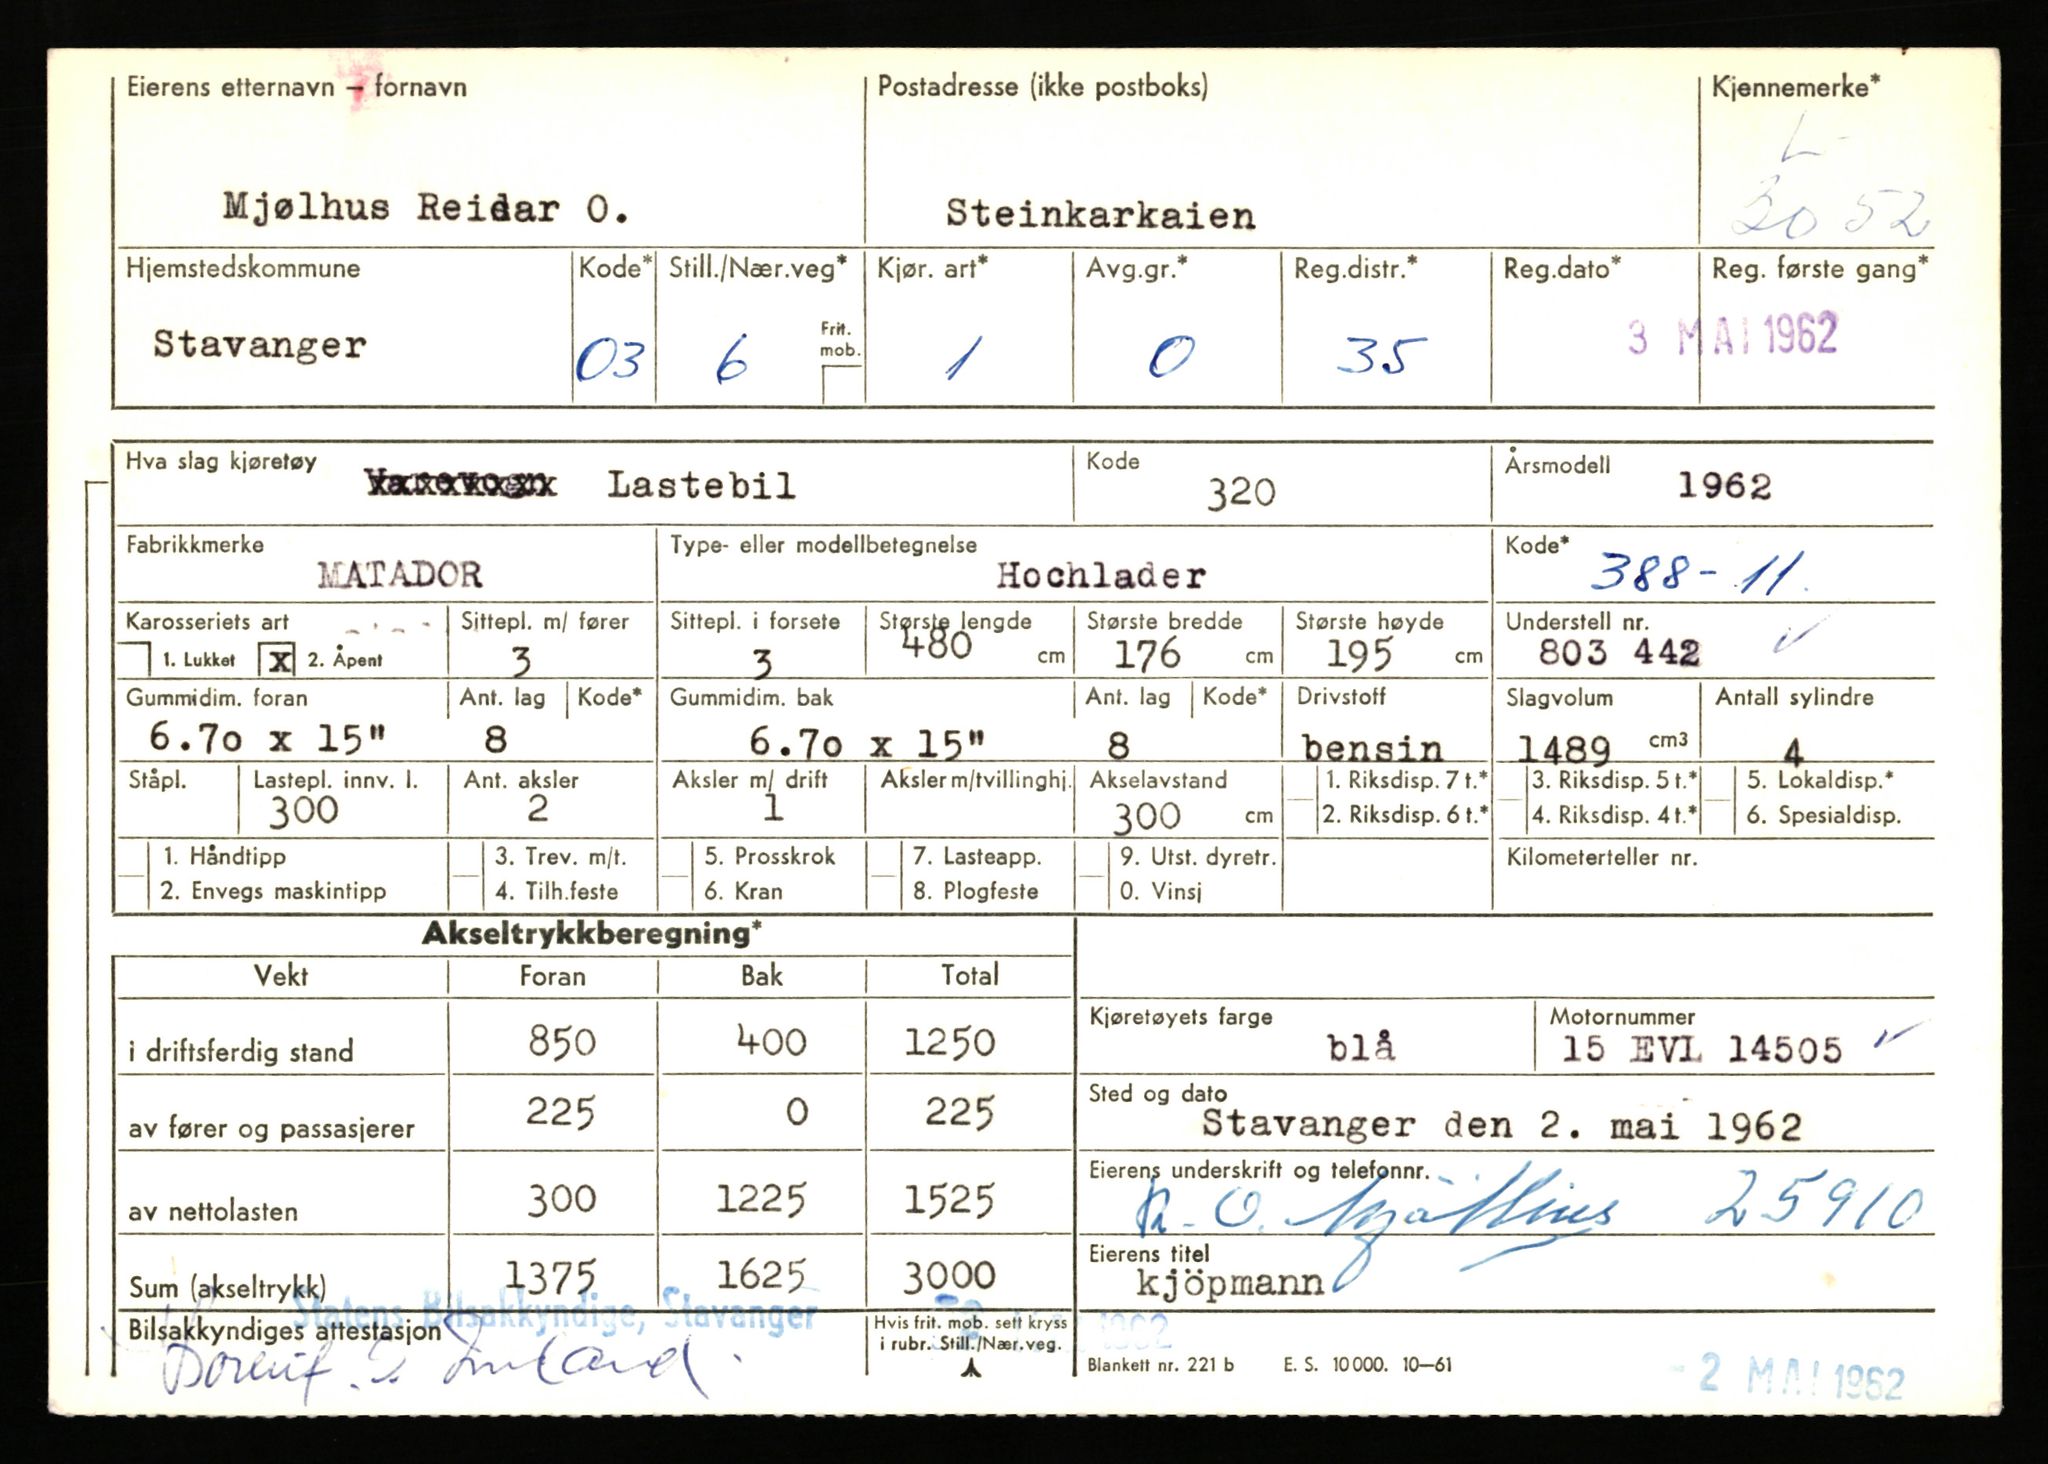 Eierens etternavn – fornavn
Postadresse (ikke postboks)
Kjennemerke*
L-
Mjølhus Reidar O.
Steinkarkaien
3052
Hjemstedskommune
Kode*
Still./Nær.veg*
Kjør. art*
Avg.gr.*
Reg.distr.*
Reg.dato*
Reg. første gang*
Stavanger
03
6
Frit. mob.
1
0
35
3 MAI 1962
Hva slag kjøretøy
Varevogn Lastebil
Kode
320
Årsmodell
1962
Fabrikkmerke
MATADOR
Type- eller modellbetegnelse
Hochlader
Kode*
388-11.
Karosseriets art
1. Lukket X 2. Åpent
Sittepl. m/ fører
3
Sittepl. i forsete
3
Største lengde
480 cm
Største bredde
176 cm
Største høyde
195 cm
Understell nr.
803 442
Gummidim. foran
6.70 x 15"
Ant. lag
8
Kode*
Gummidim. bak
6.70 x 15"
Ant. lag
8
Kode*
Drivstoff
bensin
Slagvolum
1489 cm3
Antall sylindre
4
Ståpl.
Lastepl. innv. l.
300
Ant. aksler
2
Aksler m/ drift
1
Aksler m/tvillinghj.
Akselavstand
300 cm
1. Riksdisp. 7 t.*
2. Riksdisp. 6 t.*
3. Riksdisp. 5 t.*
4. Riksdisp. 4 t.*
5. Lokaldisp.*
6. Spesialdisp.
1. Håndtipp
2. Envegs maskintipp
3. Trev. m/t.
4. Tilh.feste
5. Prosskrok
6. Kran
7. Lasteapp.
8. Plogfeste
9. Utst. dyretr.
0. Vinsj
Kilometerteller nr.
Akseltrykkberegning*
Vekt Foran Bak Total
i driftsferdig stand 850 400 1250
av fører og passasjerer 225 0 225
av nettolasten 300 1225 1525
Sum (akseltrykk) 1375 1625 3000
Kjøretøyets farge
blå
Motornummer
15 EVL 14505
Sted og dato
Stavanger den 2. mai 1962
Eierens underskrift og telefonnr.
R. O. Mjölhus 25910
Eierens titel
kjöpmann
Statens Bilsakkyndige, Stavanger
Bilsakkyndiges attestasjon
Hvis frit. mob. sett kryss
i rubr. Still./Nær.veg.
1962
Blankett nr. 221 b E. S. 10 000. 10–61
- 2 MAI 1962